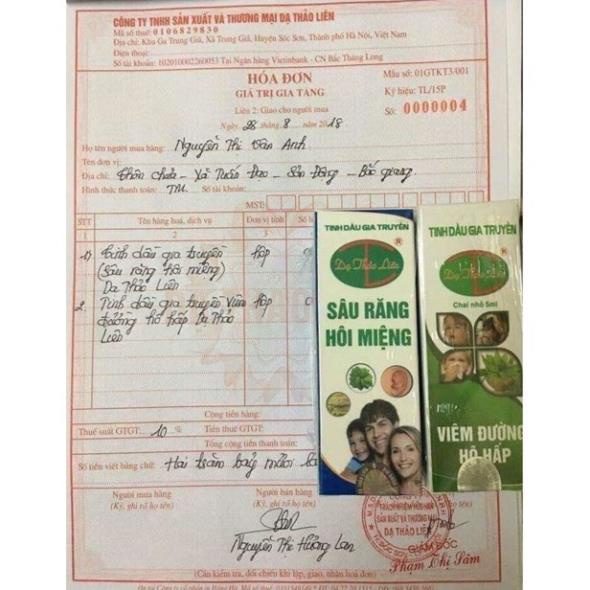 CÔNG TY TNHH SẢN XUẤT VÀ THƯƠNG MẠI DẠ THẢO LIÊN
Mã số thuế: 0106829830
Địa chỉ: Khu Ga Trung Giã, Xã Trung Giã, Huyện Sóc Sơn, Thành phố Hà Nội, Việt Nam
Điện thoại:
Số tài khoản: 102010002260053 Tại Ngân hàng Vietinbank - CN Bắc Thăng Long
HÓA ĐƠN
GIÁ TRỊ GIA TĂNG
Liên 2: Giao cho người mua
Ngày 28 tháng 8 năm 2018
Mẫu số: 01GTKT3/001
Ký hiệu: TL/15P
Số: 0000004
Họ tên người mua hàng: Nguyễn Thị Vân Anh
Tên đơn vị:
Địa chỉ: Thôn Chùa - Xã Tuấn Đạo - Sơn Động - Bắc Giang
Hình thức thanh toán: TM. Số tài khoản:
MST:
STT Tên hàng hoá, dịch vụ Đơn vị tính
1 2 3
1) Tinh dầu gia truyền hộp
(Sâu răng hôi miệng)
Dạ Thảo Liên
2. Tinh dầu gia truyền viêm hộp
đường hô hấp Dạ Thảo
Liên
Cộng tiền hàng:
Thuế suất GTGT: 10 % Tiền thuế GTGT:
Tổng cộng tiền thanh toán:
Số tiền viết bằng chữ: Hai trăm bảy mươi
Người mua hàng
(Ký, ghi rõ họ tên)
Người bán hàng
(Ký, ghi rõ họ tên)
Nguyễn Thị Hương Lan
TRÁCH NHIỆM HỮU HẠN
SẢN XUẤT VÀ THƯƠNG MẠI
DẠ THẢO LIÊN
GIÁM ĐỐC
Phạm Thị Sâm
(Cần kiểm tra, đối chiếu khi lập, giao, nhận hoá đơn)
TINH DẦU GIA TRUYỀN
Dạ Thảo Liên
SÂU RĂNG
HÔI MIỆNG
TINH DẦU GIA TRUYỀN
Dạ Thảo Liên
Chai nhỏ 5ml
VIÊM ĐƯỜNG
HÔ HẤP